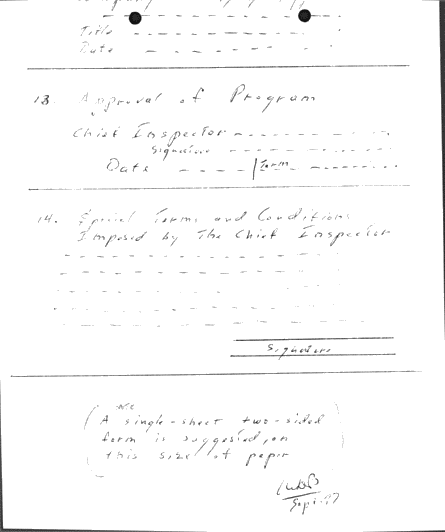 Title
Date
13. Approval of Program
Chief Inspector
Signature
Date Term
14. Special Terms and Conditions
Imposed by The Chief Inspector
Signature
(A single-sheet two-sided
form is suggested, on
this size of paper)